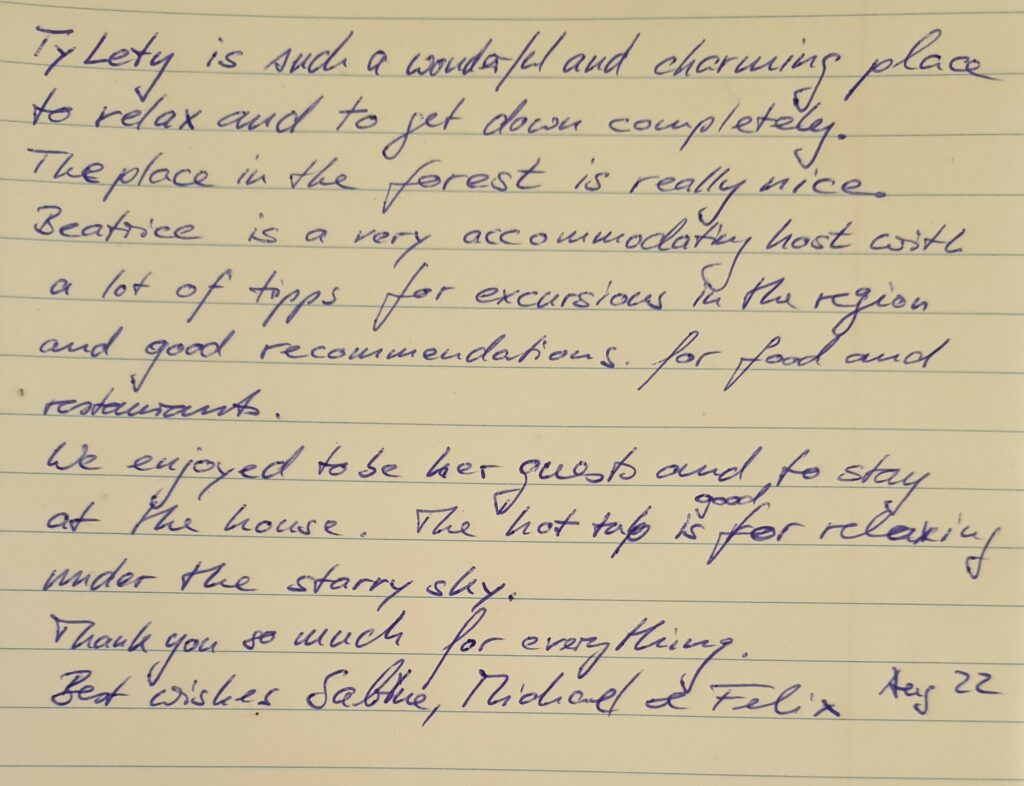 Ty Lety is such a wonderful and charming place
to relax and to get down completely.
The place in the forest is really nice.
Beatrice is a very accommodating host with
a lot of tipps for excursions in the region
and good recommendations. for food and
restaurants.
We enjoyed to be her guests and to stay
good
at the house. The hot tub is for relaxing
under the starry sky.
Thank you so much for everything.
Best wishes Sabine, Michael & Felix Aug 22